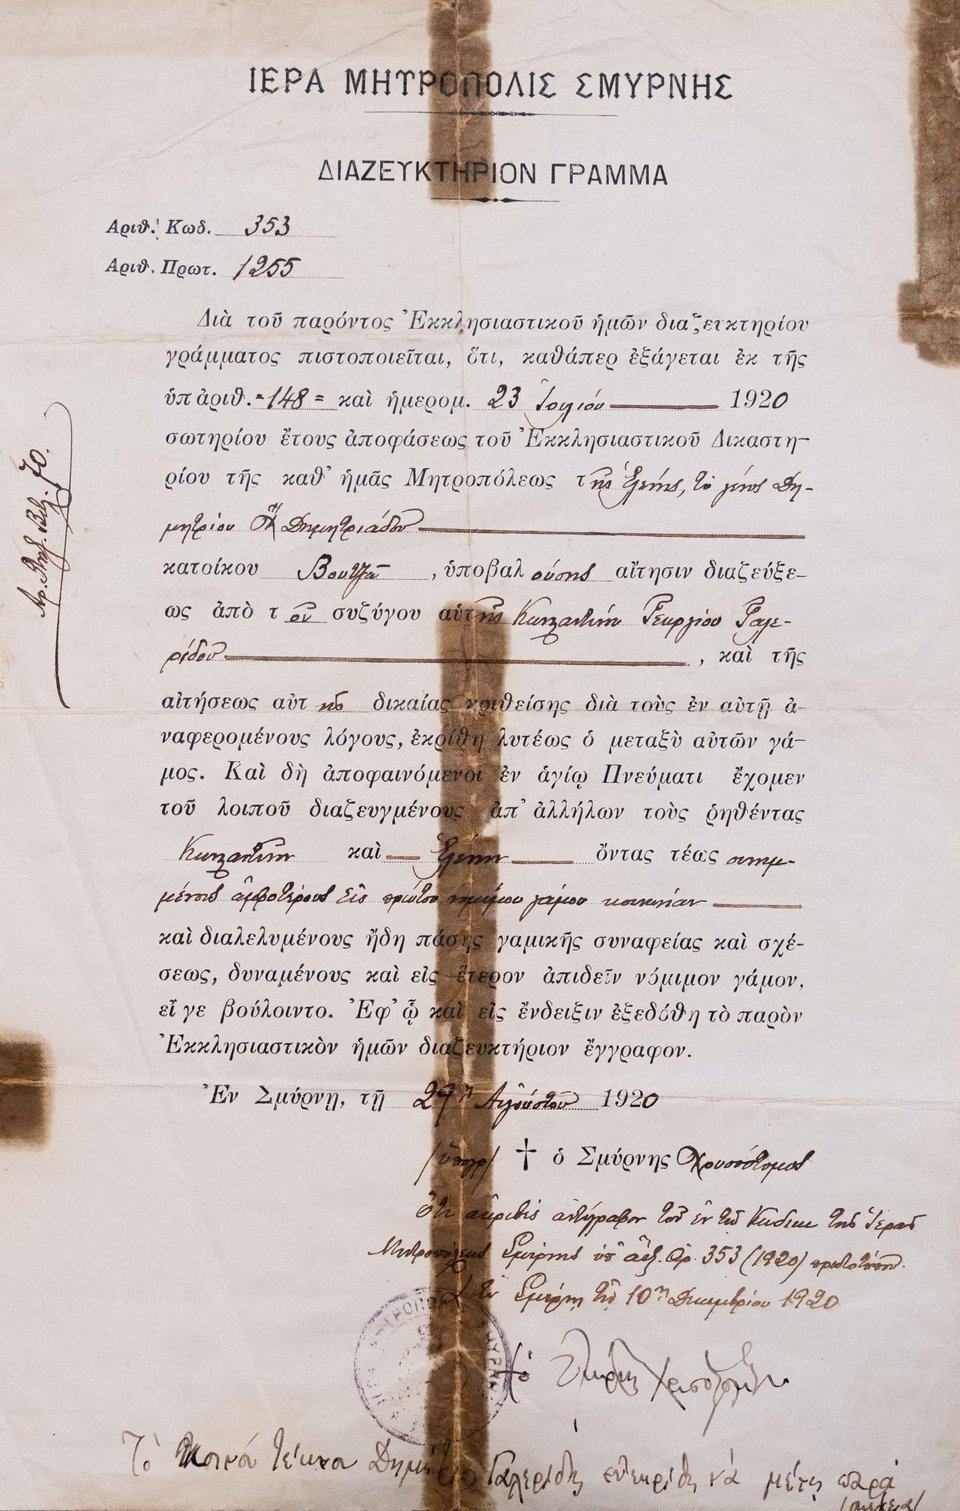 ΙΕΡΑ ΜΗΤΡΟΠΟΛΙΣ ΣΜΥΡΝΗΣ
ΔΙΑΖΕΥΚΤΗΡΙΟΝ ΓΡΑΜΜΑ
Ἀριθ. Κωδ. 353
Ἀριθ. Πρωτ. 1255
Διὰ τοῦ παρόντος Ἐκκλησιαστικοῦ ἡμῶν διαζευκτηρίου
γράμματος πιστοποιεῖται, ὅτι, καθάπερ ἐξάγεται ἐκ τῆς
ὑπ ἀριθ. =148= καὶ ἡμερομ. 23 Ἰουλίου 1920
σωτηρίου ἔτους ἀποφάσεως τοῦ Ἐκκλησιαστικοῦ Δικαστη-
ρίου τῆς καθ' ἡμᾶς Μητροπόλεως τῆς Ἑλένης, τὸ γένος Δη-
μητρίου Δημητριάδου
κατοίκου Βουτζᾶ, ὑποβαλούσης αἴτησιν διαζεύξε-
ως ἀπὸ τοῦ συζύγου αὑτῆς Κωνσταντίνου Γεωργίου Γαλε-
ρίδου, καὶ τῆς
αἰτήσεως αὐτῆς δικαίας κριθείσης διὰ τοὺς ἐν αὐτῇ ἀ-
ναφερομένους λόγους, ἐκρίθη λυτέως ὁ μεταξὺ αὐτῶν γά-
μος. Καὶ δὴ ἀποφαινόμενοι ἐν ἁγίῳ Πνεύματι ἔχομεν
τοῦ λοιποῦ διαζευγμένους ἀπ' ἀλλήλων τοὺς ῥηθέντας
Κωνσταντῖνον καὶ Ἑλένην ὄντας τέως συνημ-
μένους ἀμφοτέρους εἰς πρώτου νομίμου γάμου κοινωνίαν
καὶ διαλελυμένους ἤδη πάσης γαμικῆς συναφείας καὶ σχέ-
σεως, δυναμένους καὶ εἰς ἕτερον ἀπιδεῖν νόμιμον γάμον,
εἴ γε βούλοιντο. Ἐφ' ᾧ καὶ εἰς ἔνδειξιν ἐξεδόθη τὸ παρὸν
Ἐκκλησιαστικὸν ἡμῶν διαζευκτήριον ἔγγραφον.
Ἐν Σμύρνῃ, τῇ 29ῃ Αὐγούστου 1920
(ὑπογρ) † ὁ Σμύρνης Χρυσόστομος
Ὅτι ἀκριβὲς ἀντίγραφον τοῦ ἐν τῷ Κώδικι τῆς Ἱερᾶς
Μητροπόλεως Σμύρνης ὑπ' αὔξ. ἀρ. 353 (1920) πρωτοτύπου.
Ἐν Σμύρνῃ τῇ 10ῃ Δεκεμβρίου 1920
†ὁ Σμύρνης Χρυσόστομος
Τὸ τέκνα Γαλερίδη νὰ παρά